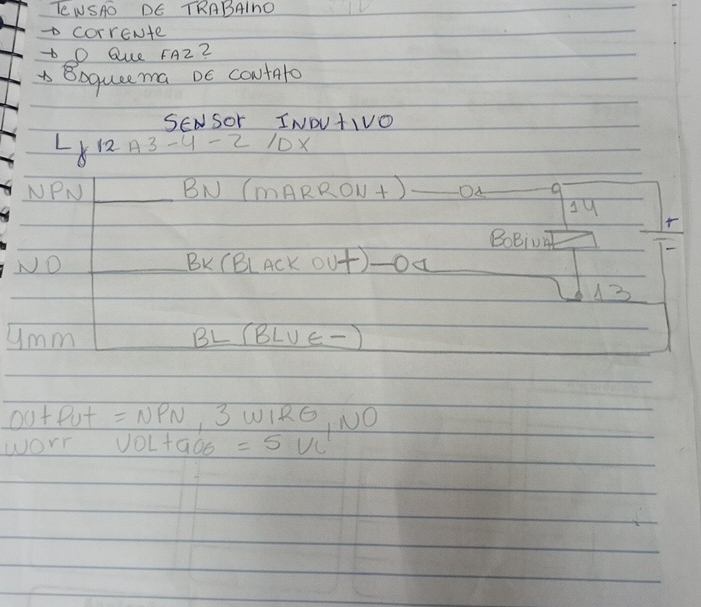 TENSÃO DE TRABAlHO
→ CORRENTE
→ O QUE FAZ?
→ ESQUEEMA DE CONTATO
SENSOR INDUTIVO
Lj 12 A3-4-2 /DX
NPN BN (MARRON +)
14
BOBINA
+
-
NO BK (BLACK OUT)
13
4mm BL (BLUE -)
OUTPUT = NPN, 3 WIRE, NO
WORK VOLTAGE = 5 V